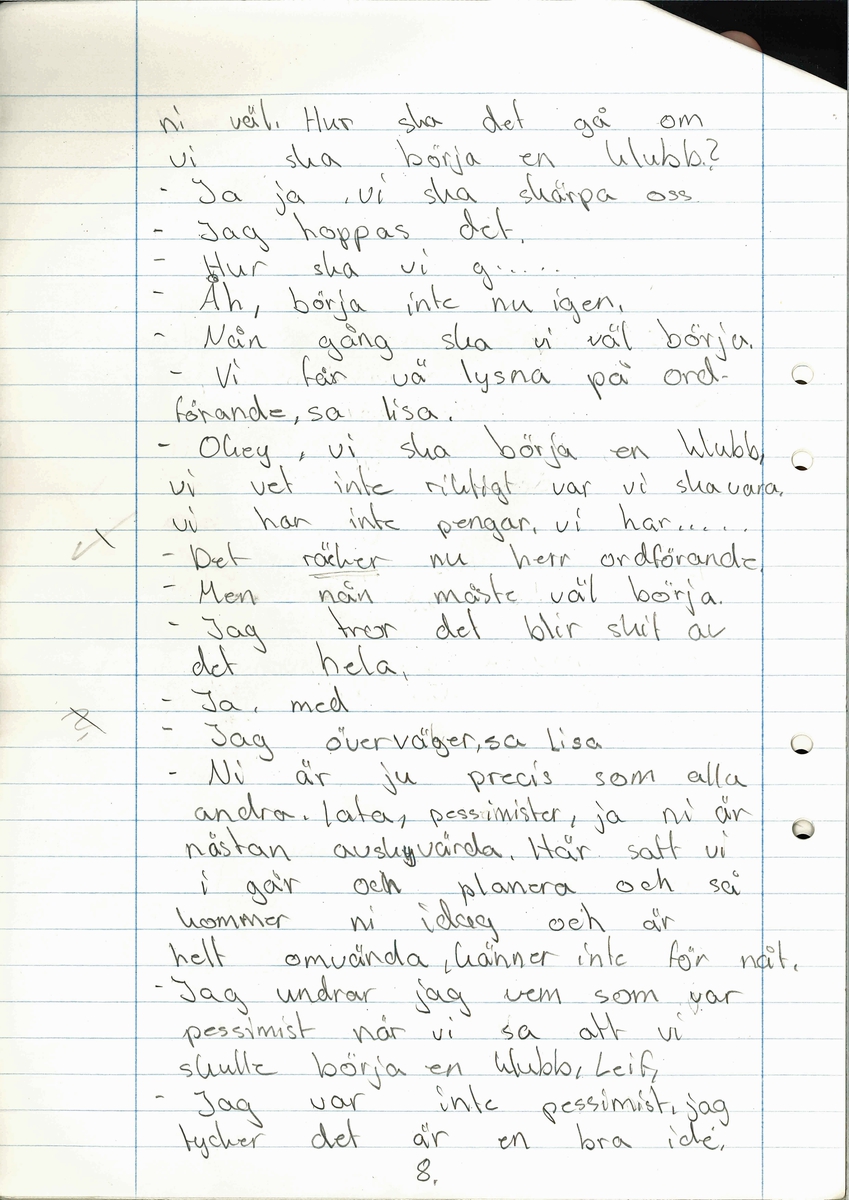 ni väl. Hur ska det gå om
vi ska börja en klubb?
- Ja ja, vi ska skärpa oss
- Jag hoppas det.
- Hur ska vi g......
- Åh, börja inte nu igen.
- Nån gång ska vi väl börja.
- Vi får vä lysna på ord-
förande, sa lisa.
- Okey, vi ska börja en klubb,
vi vet inte riktigt var vi ska vara,
vi har inte pengar, vi har.....
- Det räcker nu herr ordförande.
- Men nån måste väl börja.
- Jag tror det blir skit av
det hela,
- Ja, med
- Jag överväger, sa Lisa
- Ni är ju precis som alla
andra. Lata, pessimister, ja ni är
nästan avskyvärda. Här satt vi
i går och planera och så
kommer ni idag och är
helt omvända, känner inte för nåt.
- Jag undrar jag vem som var
pessimist när vi sa att vi
skulle börja en klubb, Leif,
- Jag var inte pessimist, jag
tycker det är en bra idé.
8.